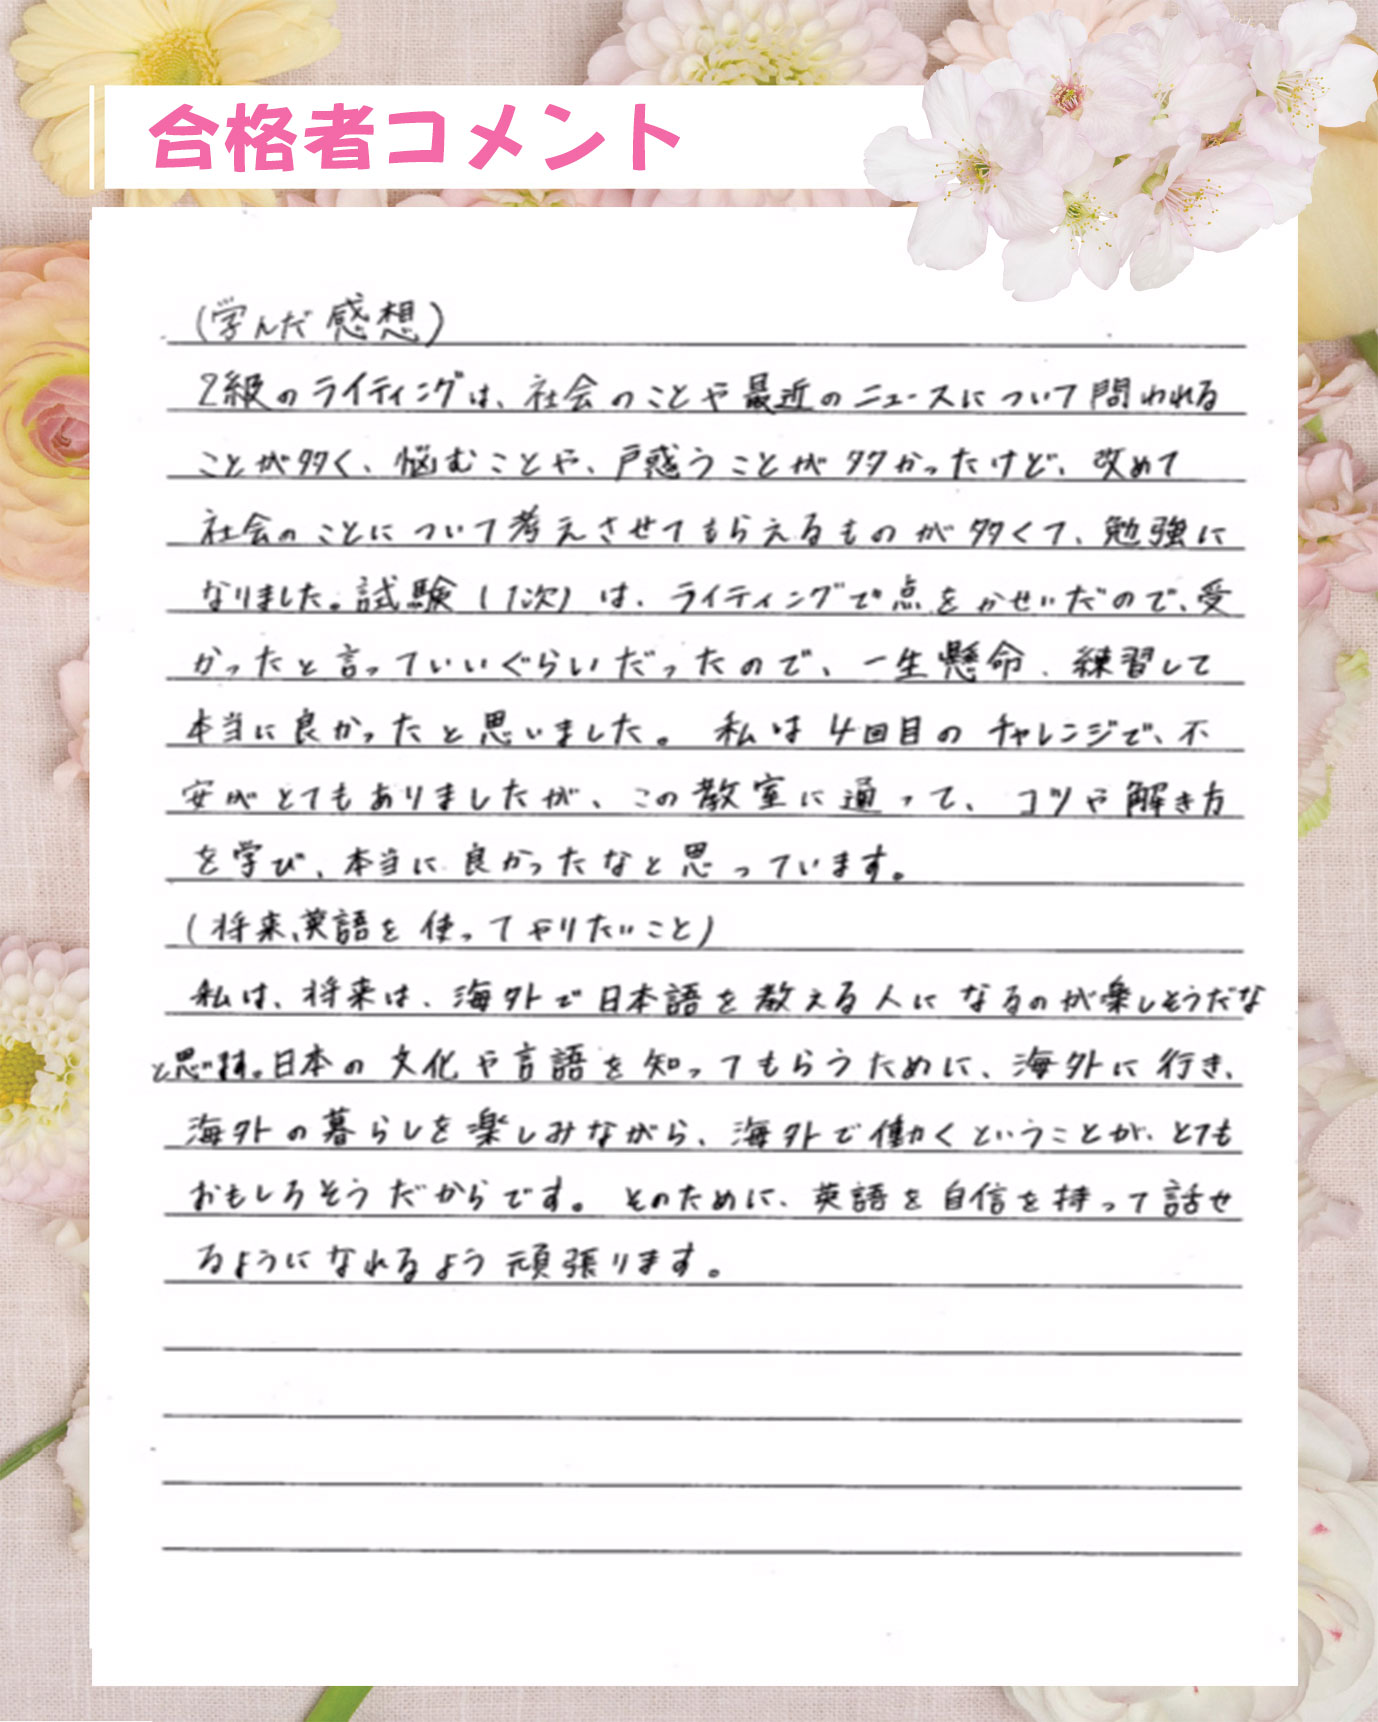 合格者コメント
(学んだ感想)
2級のライティングは、社会のことや最近のニュースについて問われる
ことが多く、悩むことや、戸惑うことが多かったけど、改めて
社会のことについて考えさせてもらえるものが多くて、勉強に
なりました。試験(1次)は、ライティングで点をかせいだので、受
かったと言っていいぐらいだったので、一生懸命、練習して
本当に良かったと思いました。私は4回目のチャレンジで、不
安がとてもありましたが、この教室に通って、コツや解き方
を学び、本当に良かったなと思っています。
(将来、英語を使ってやりたいこと)
私は、将来は、海外で日本語を教える人になるのが楽しそうだな
と思います。日本の文化や言語を知ってもらうために、海外に行き、
海外の暮らしを楽しみながら、海外で働くということが、とても
おもしろそうだからです。そのために、英語を自信を持って話せ
るようになれるよう頑張ります。